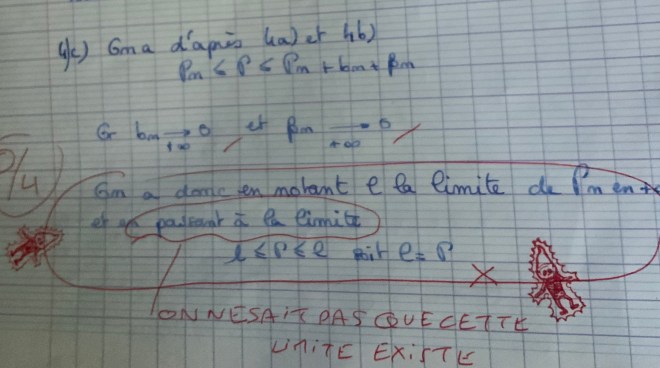 4)c) On a d'après 4a) et 4b)
Pn ≤ P ≤ Pn + bn + βn
Or bn → 0 , et βn → 0
+∞ +∞
/4
On a donc en notant l la limite de Pn en +∞
et en passant à la limite
l ≤ P ≤ l soit l = P
ON NE SAIT PAS QUE CETTE
LIMITE EXISTE